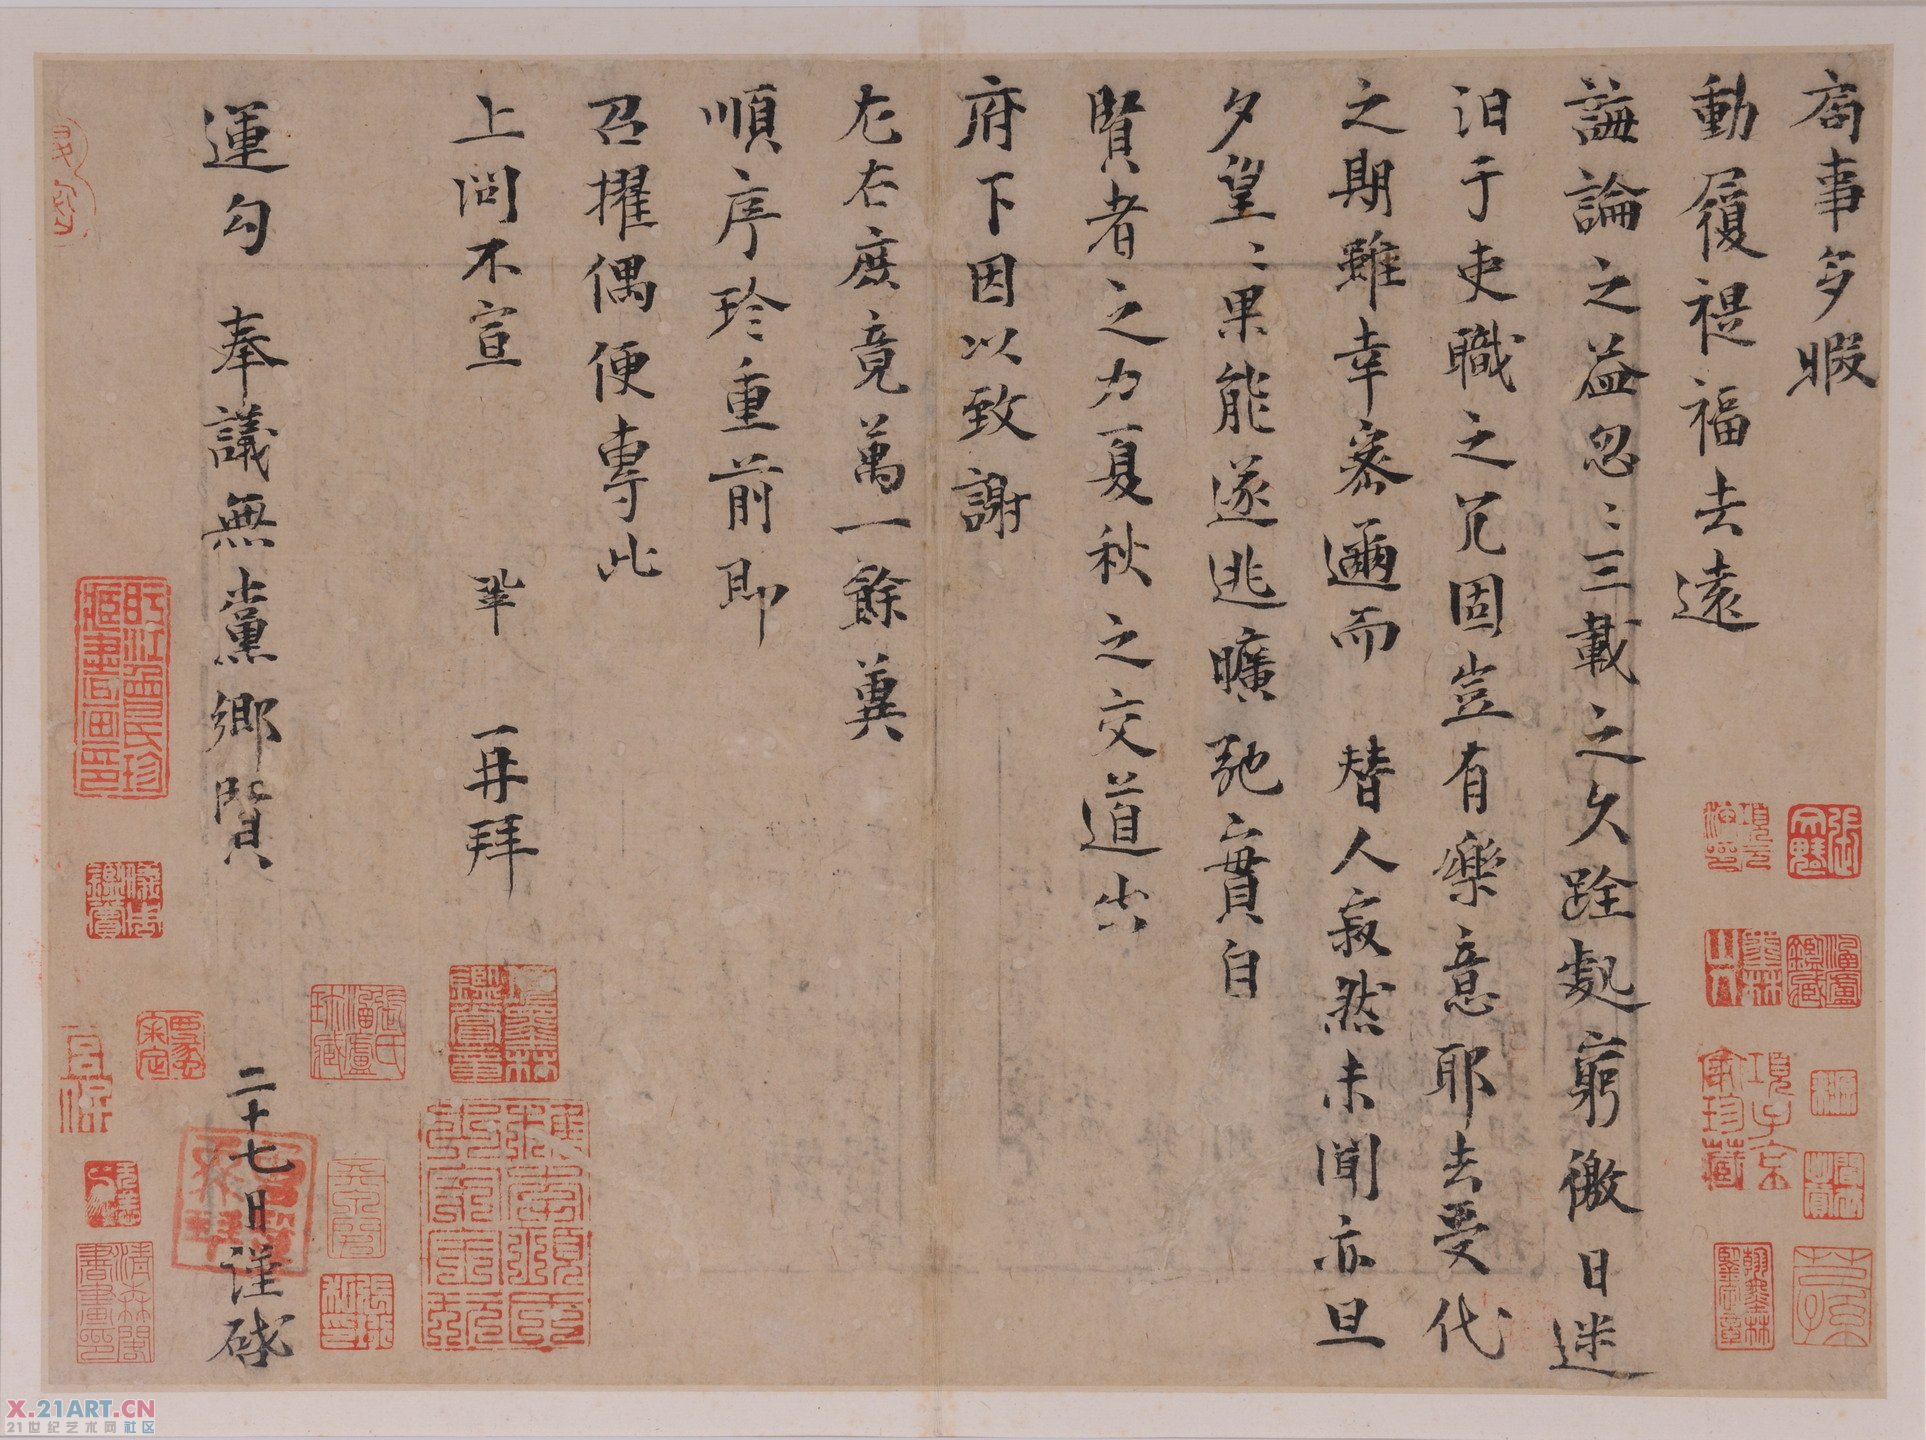 局事多暇
動履禔福去遠
誨論之益忽〻三載之久跧處窮徼日迷
汨于吏職之冗固豈有樂意耶去受代
之期雖幸密邇而 替人寂然未聞亦旦
夕望〻果能遂逃曠弛實自
賢者之力夏秋之交道出
府下因以致謝
左右庶竟萬一餘冀
順序珍重前即
召擢偶便專此
上問不宣 鞏 再拜
運勾 奉議無黨鄉賢 二十七日謹啓
X.21ART.CN
21世纪艺术网社区